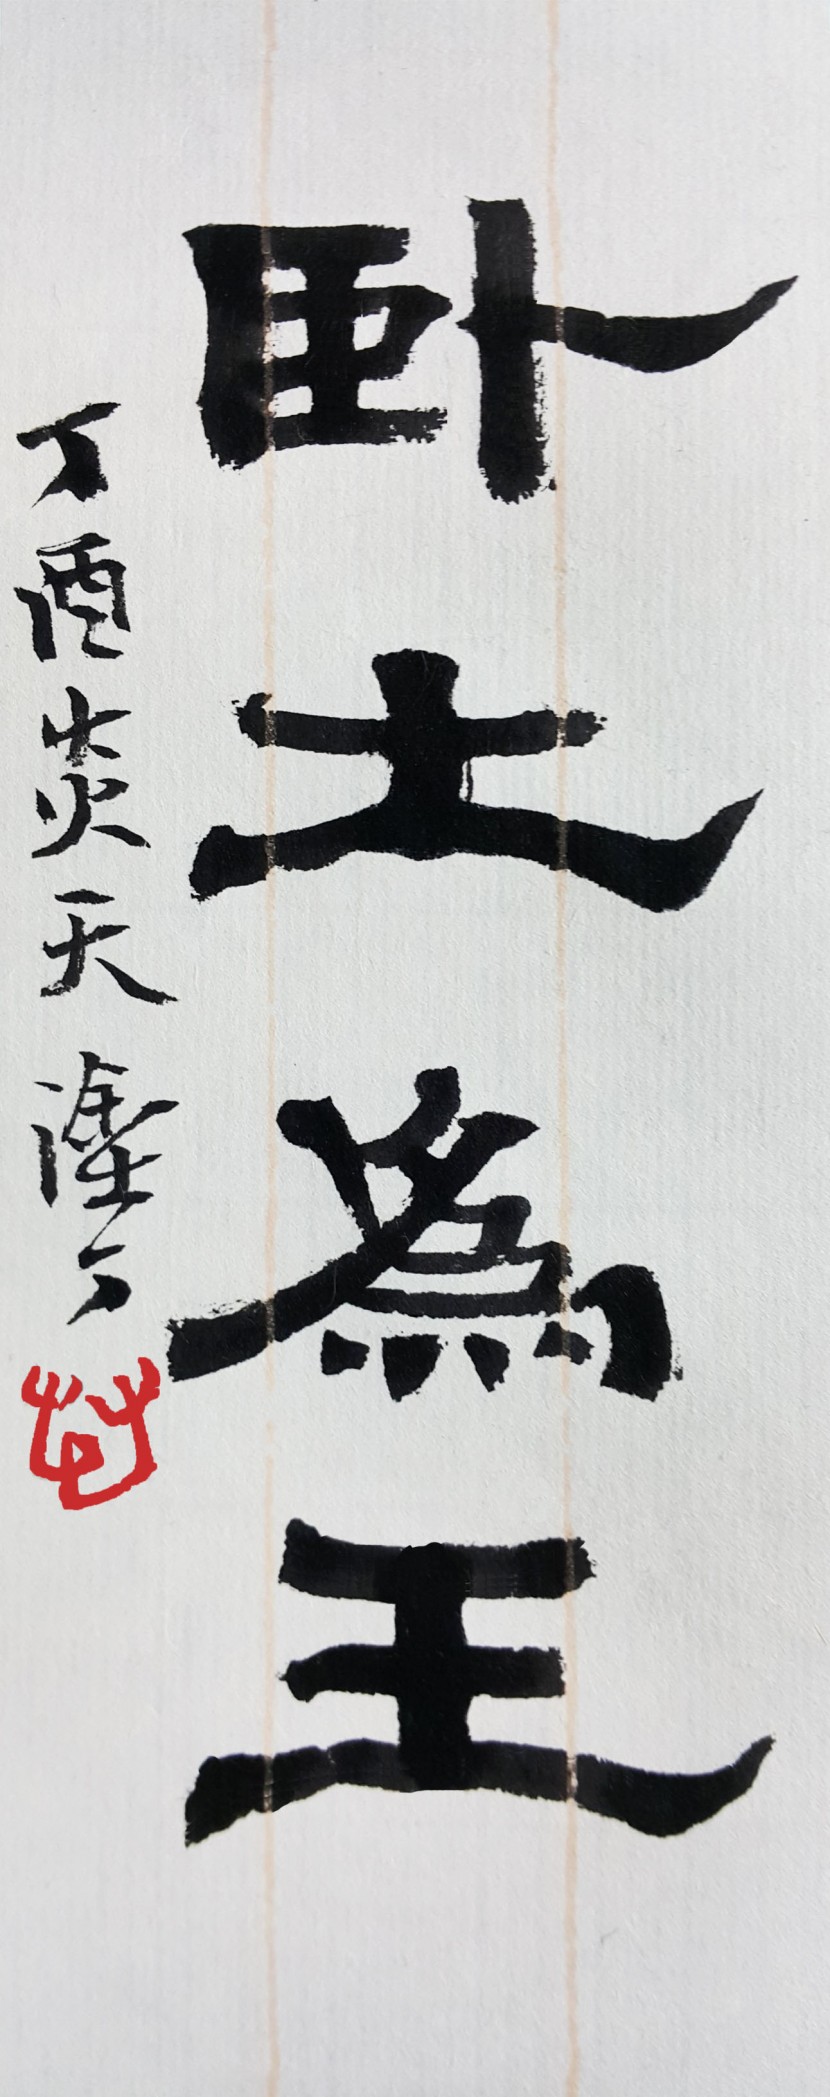 卧土為王
丁酉炎天